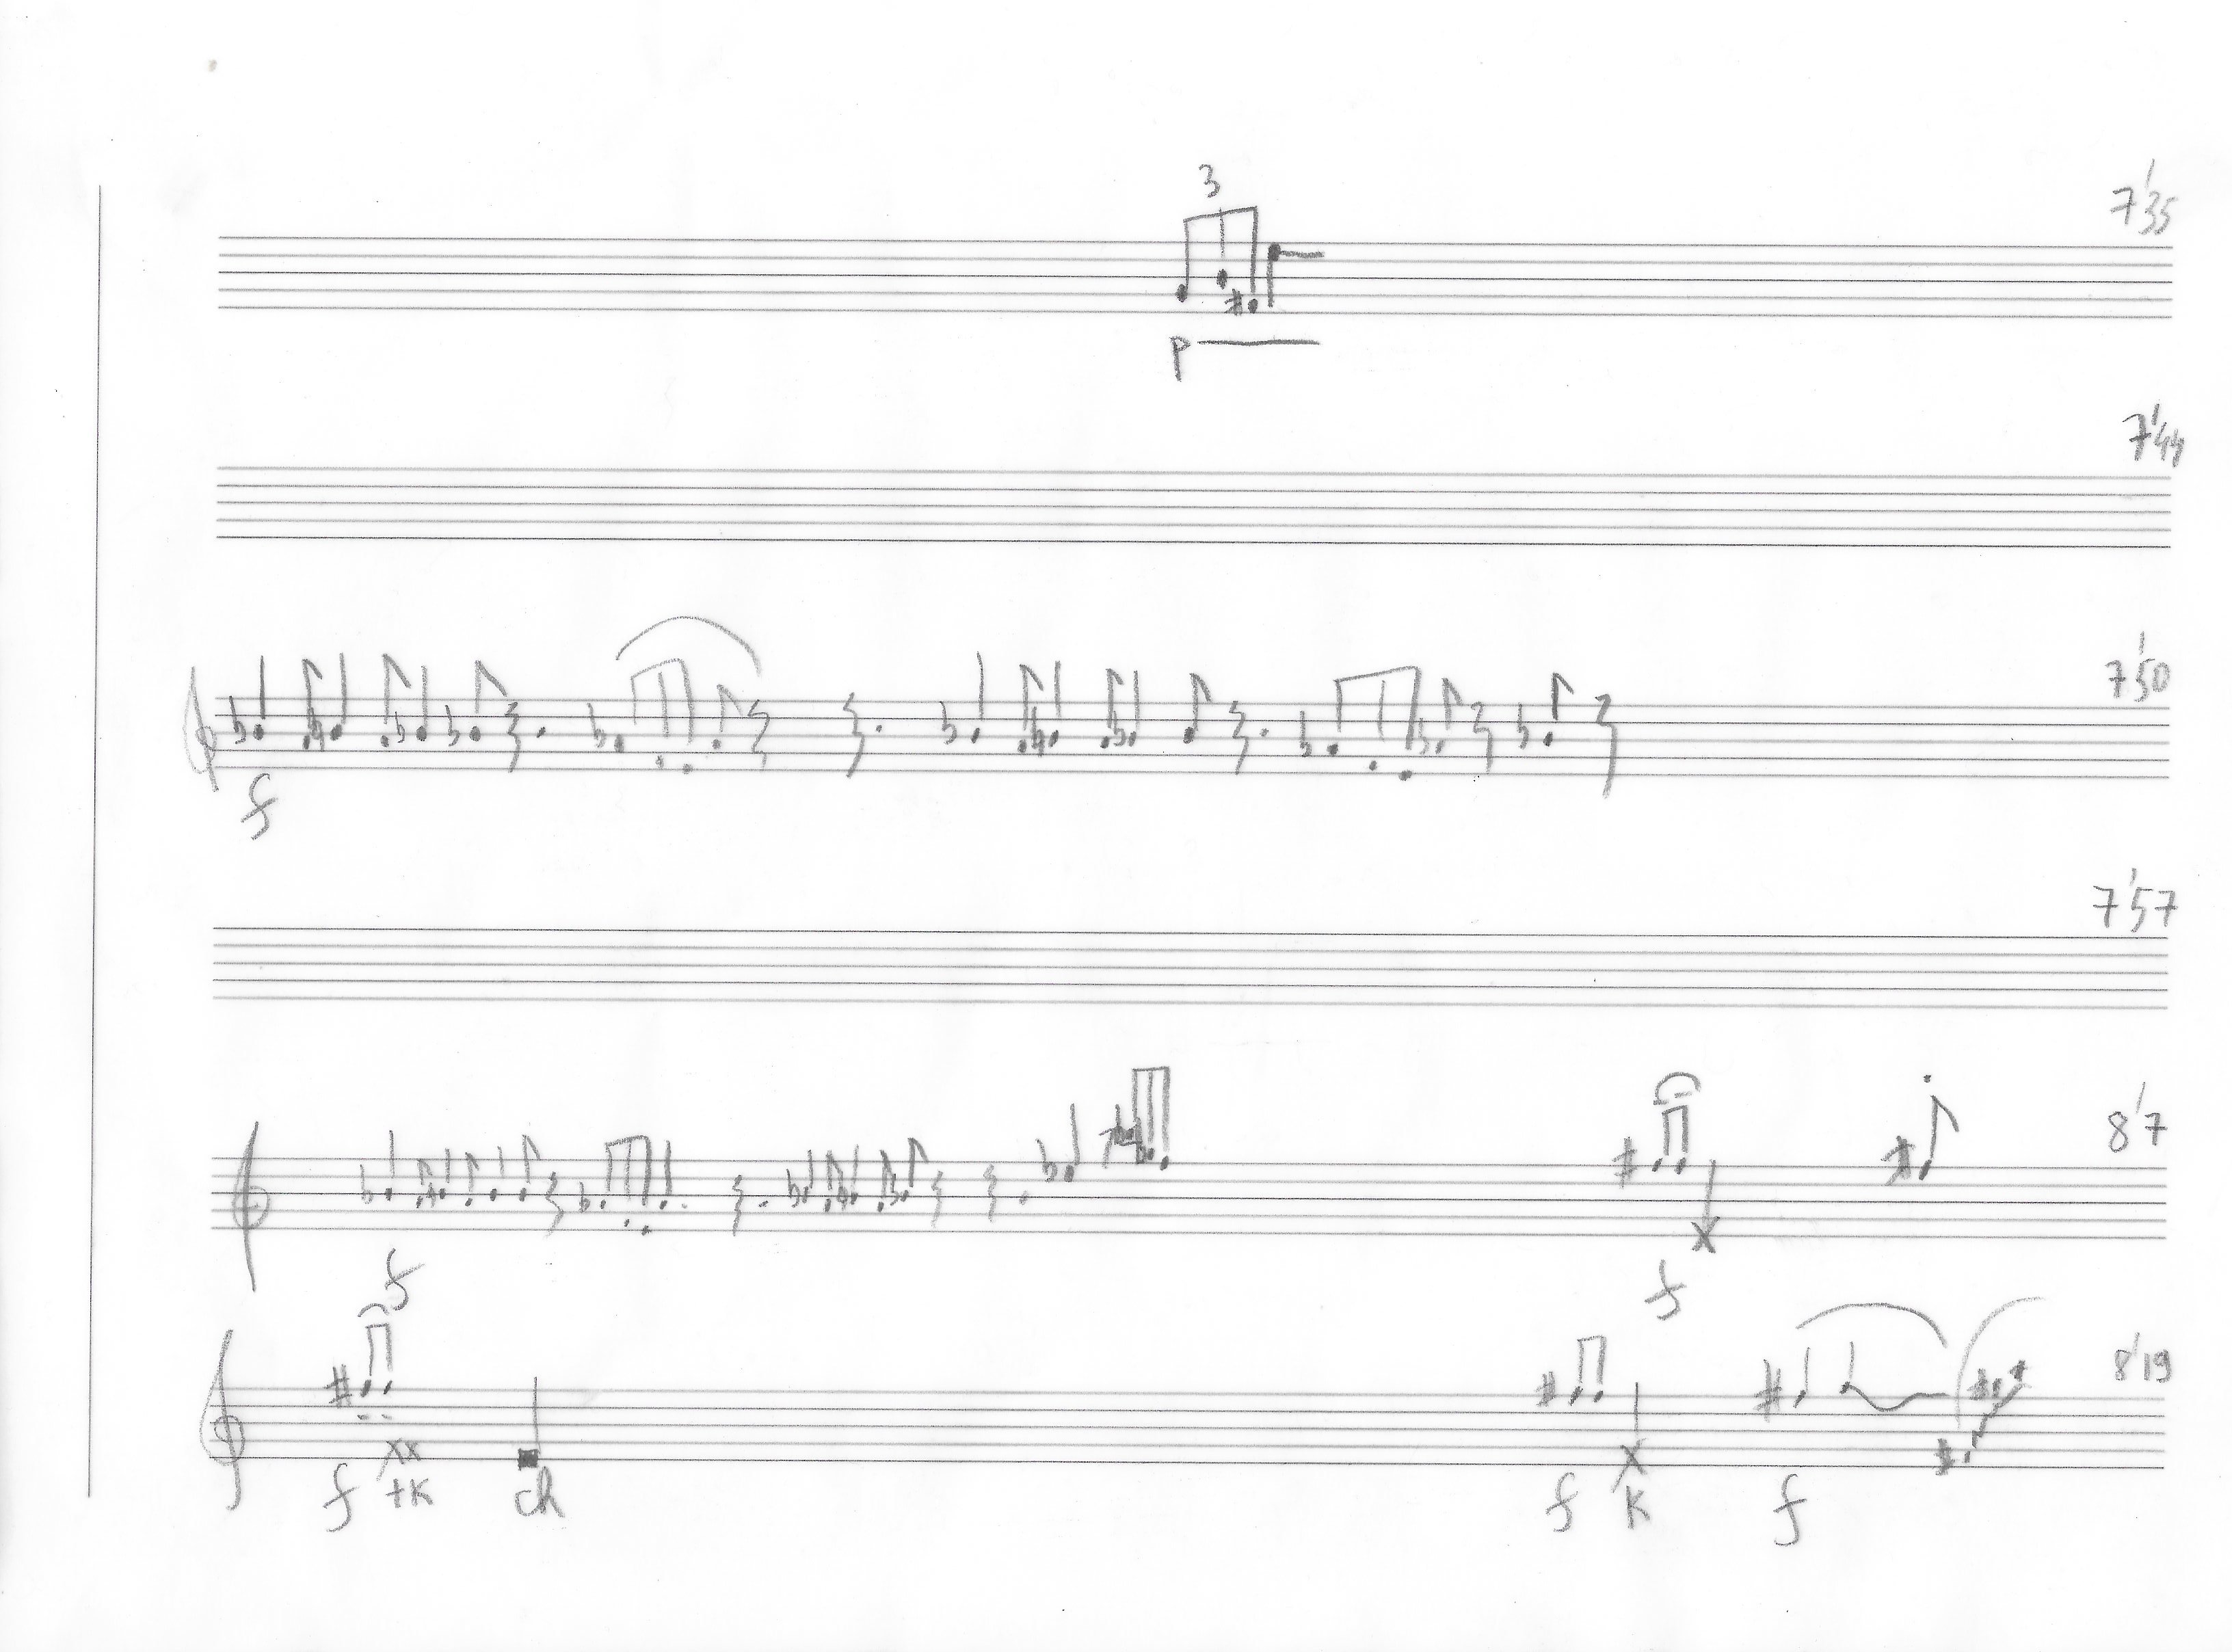 3
7'35
p
7'44
7'50
f
7'57
8'7
f
f
8'19
f tk ch f k f